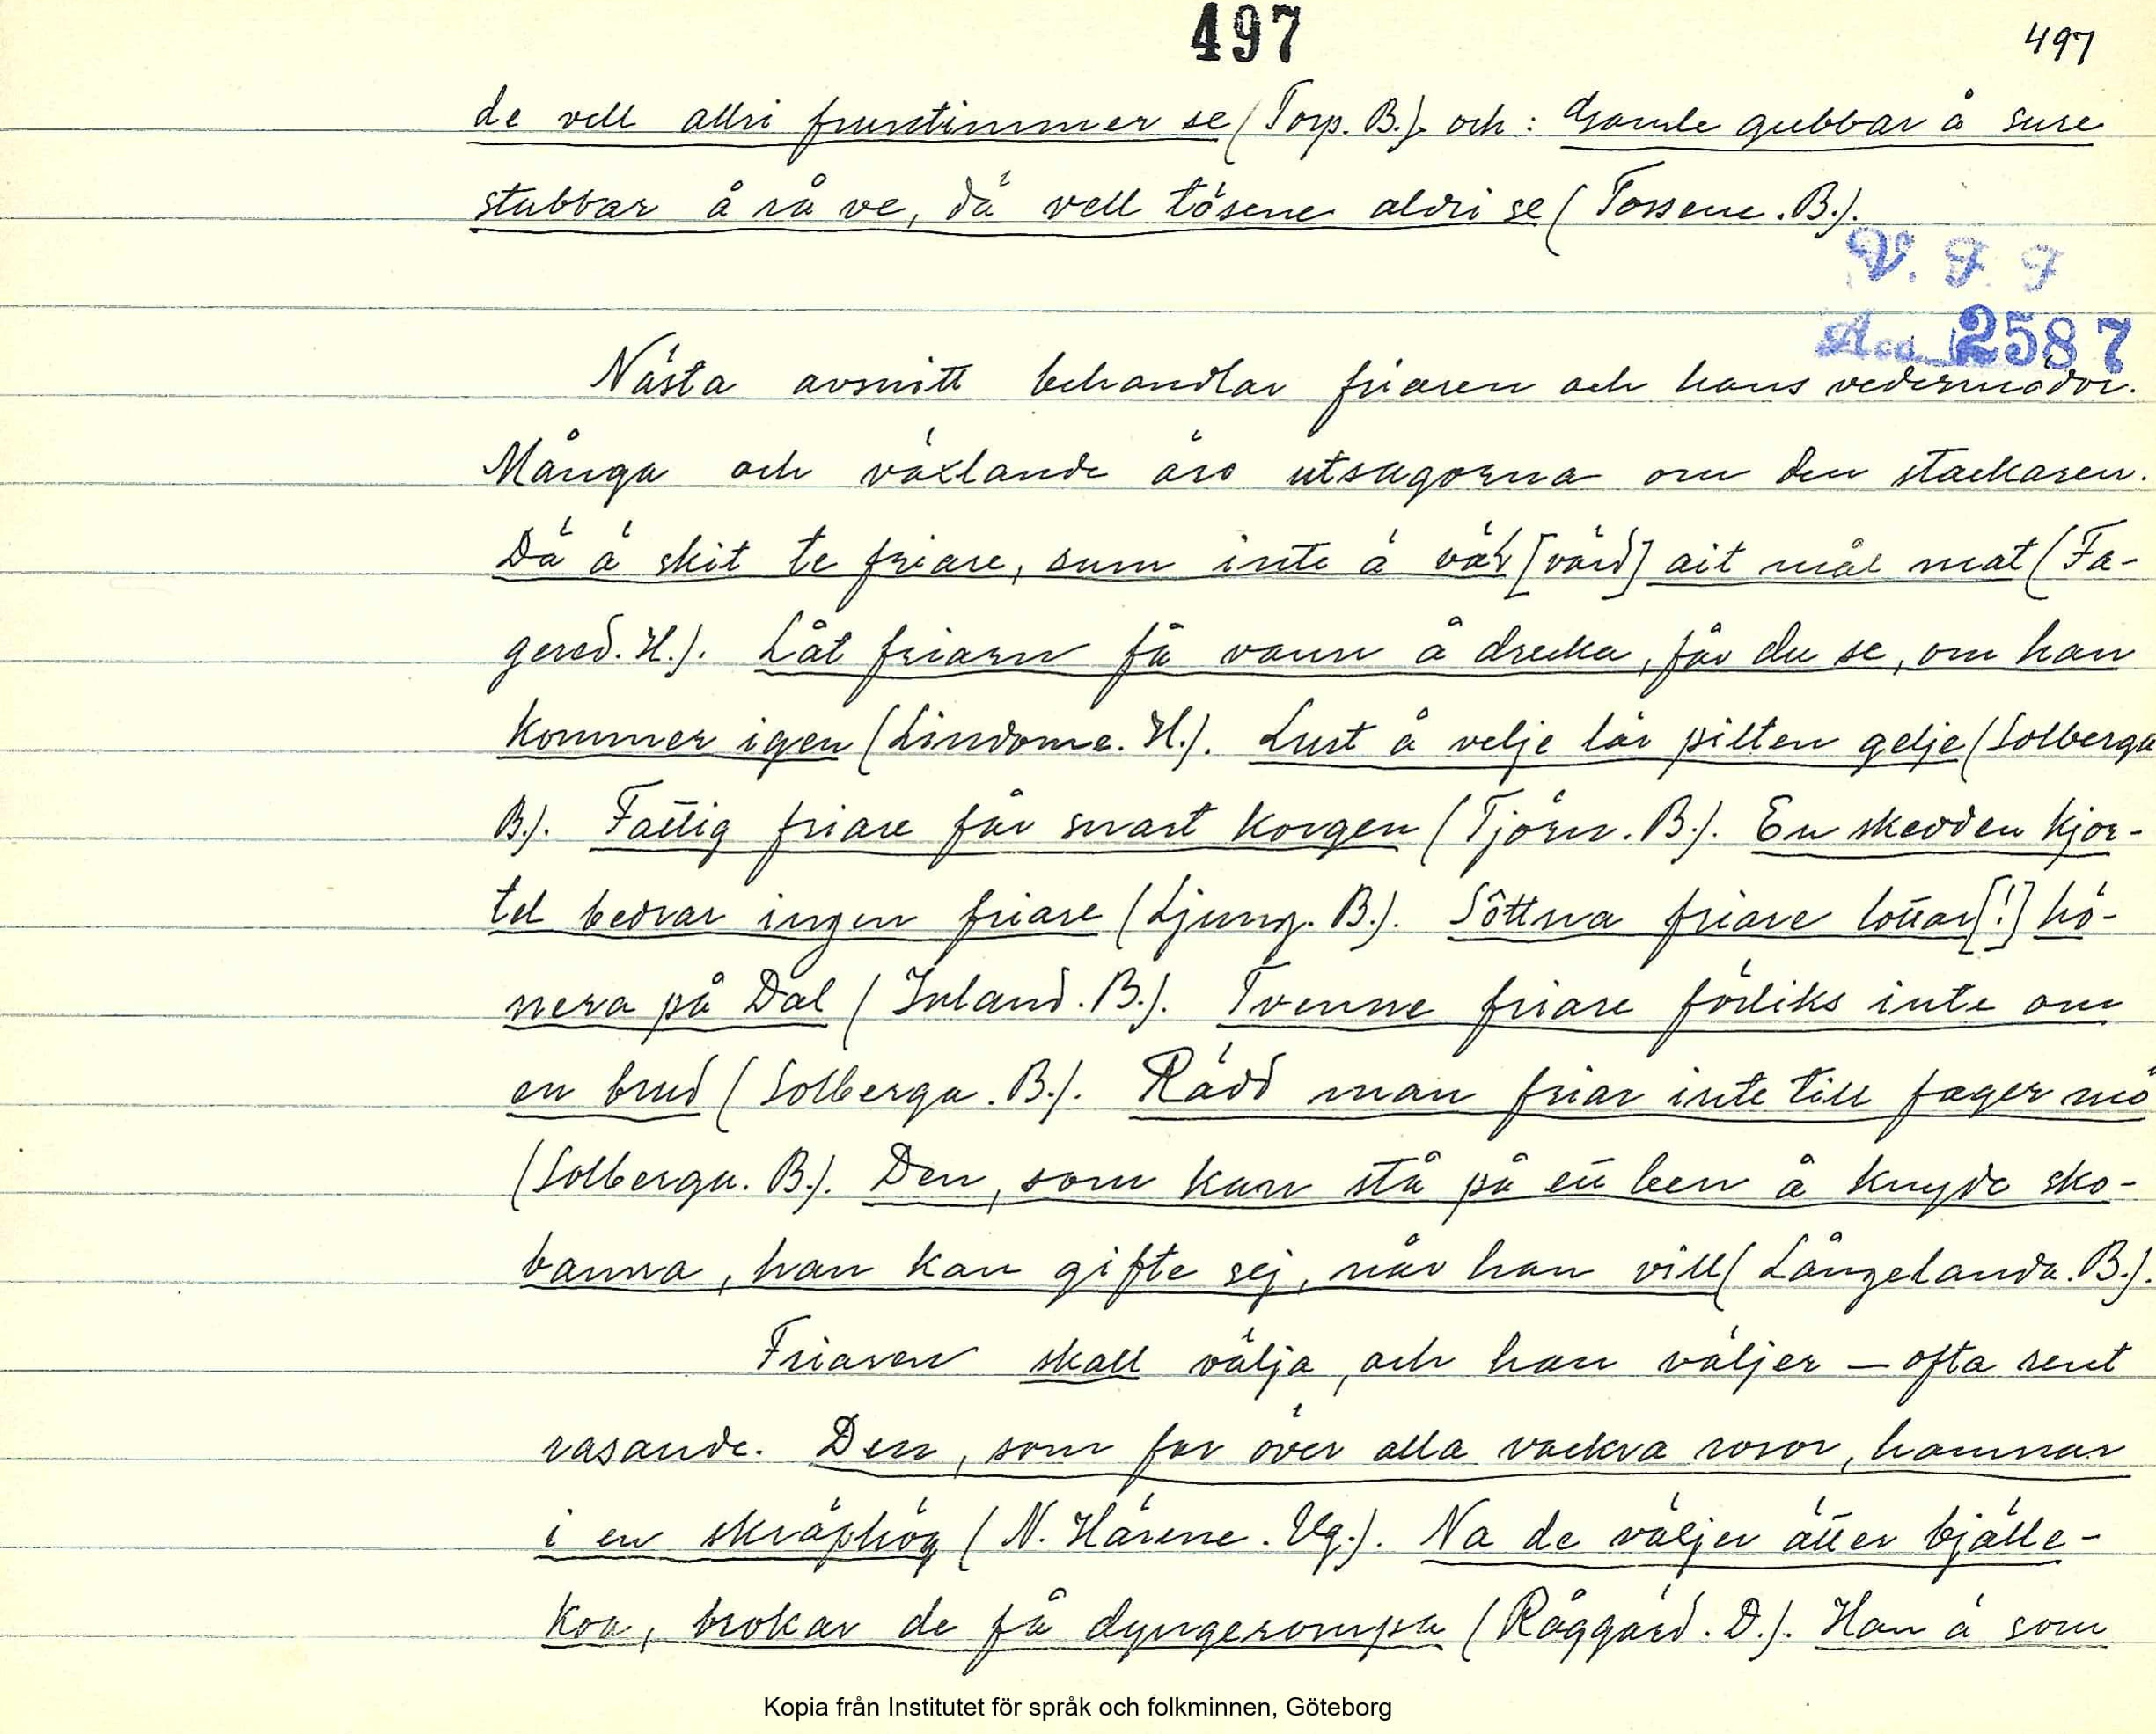 497
497
de vell allri fruntimmer se (Torp. B.). och: Gamle gubbar å sure
stubbar å rå ve, dä vell tösene aldri se (Tossene. B.).
V. F. F
Acc. 2587
Nästa avsnitt behandlar friaren och hans vedermödor.
Många och växlande äro utsagorna om den stackaren.
Dä ä skit te friare, sum inte ä vär [värd] ait mål mat (Fa-
gered. H.). Låt friarn få vann å drecka, får du se, om han
kommer igen (Lindome. H.). Lust å velje lär pilten gelje (Solberga
B.). Fattig friare får snart korgen (Tjörn. B.). En skedden kjor-
tel bedrar ingen friare (Ljung. B.). Söttna friare louar [!] hö-
nera på Dal (Inland. B.). Tvenne friare förliks inte om
en brud (Solberga. B.). Rädd man friar inte till fager mö
(Solberga. B.). Den, som kan stå på ett ben å knyde sko-
banna, han kan gifte sej, når han vill (Långelanda. B.).
Friaren skall välja, och han väljer — ofta rent
rasande. Den, som far över alla vackra rosor, hamnar
i en skräphög (N. Härene. Vg.). Na de väljer ätter bjälle-
koa, brokar de få dyngerompa (Råggärd. D.). Han ä som
Kopia från Institutet för språk och folkminnen, Göteborg